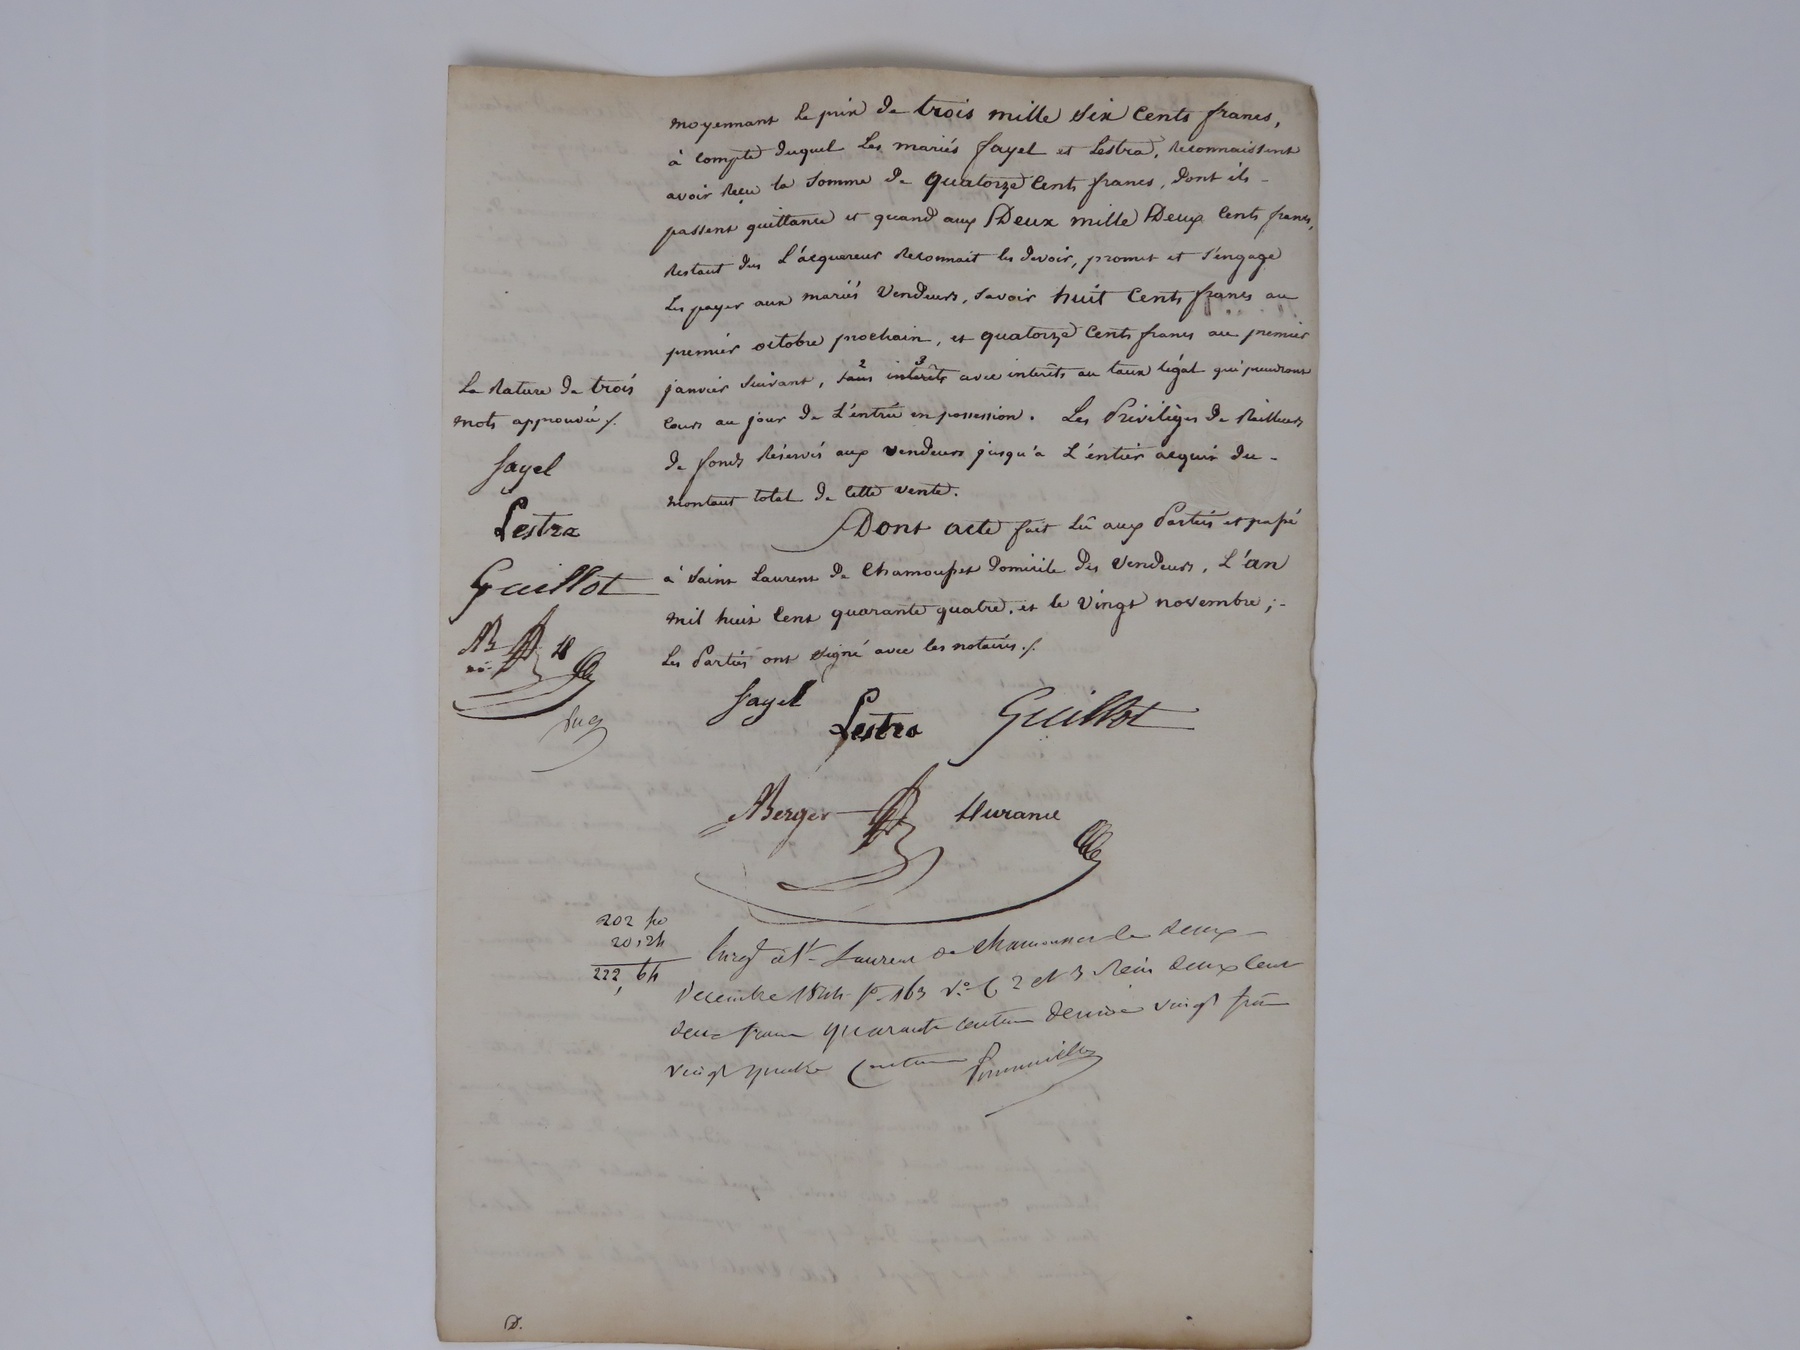 moyennant le prix de trois mille six cents francs,
à compte duquel les mariés fayel et Lestra, reconnaissent
avoir reçu la somme de quatorze cents francs, dont ils -
passent quittance et quand aux Deux mille Deux cents francs,
restant dus l'acquereur reconnait les devoir, promet et s'engage
les payer aux mariés vendeurs, savoir huit cents francs au
premier octobre prochain, et quatorze cents francs au premier
janvier suivant, sans intérêts avec intérêts au taux légal qui prendront
cours au jour de l'éntrée en possession. Les Privilèges de Bailleurs
de fonds réservés aux vendeurs jusqu'a l'éntier acquis du -
montant total de cette vente.
Dont acte fait lû aux Parties et passé
à Saint Laurent de Chamousset domicile des vendeurs, l'an
mil huit cent quarante quatre, et le vingt novembre ; -
Les Parties ont signé avec les notaires ./.
La rature de trois
mots approuvée /.
fayel
Lestra
Guillot
AB
fayel
Lestra Guillot
ABerger Durance
202 40
20,24
222, 64
Enreg à St Laurent de Chamousset le deux
Décembre 1844 fo 163 vo C 2 et 3 Reçu deux cent
deux francs quarante centimes décime vingt francs
vingt quatre centimes
D.